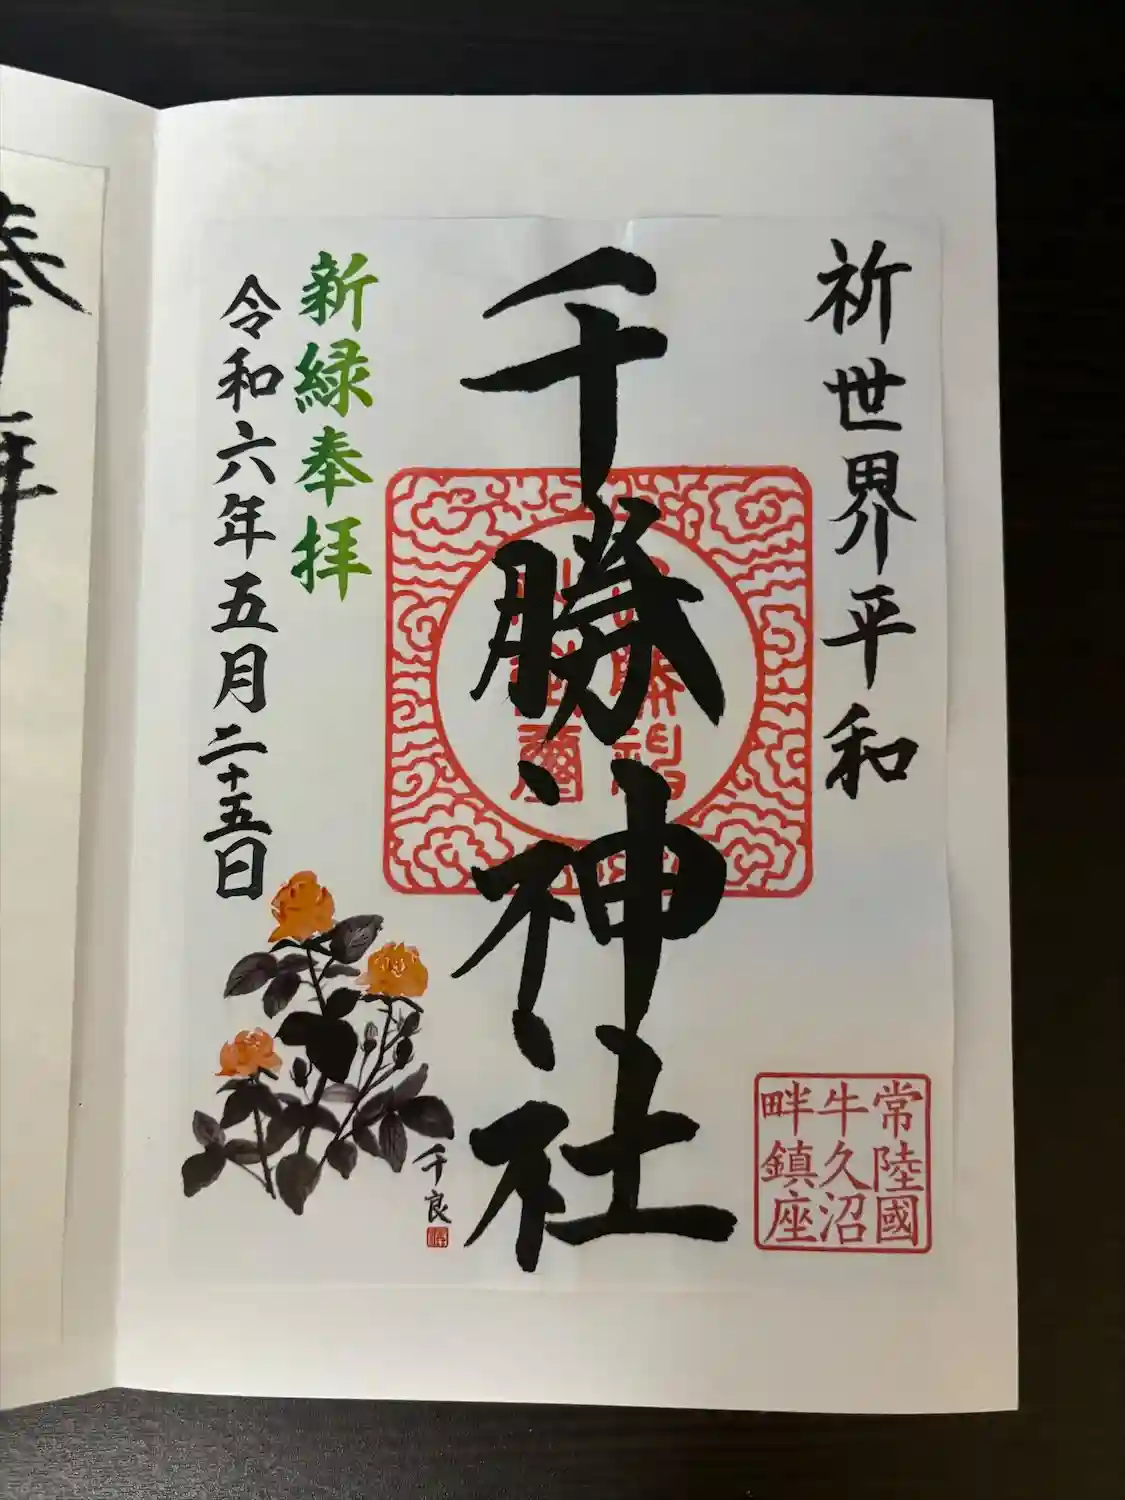 祈世界平和
千勝神社
新緑奉拝
令和六年五月二十五日
千良
常陸國
牛久沼
畔鎮座
奉